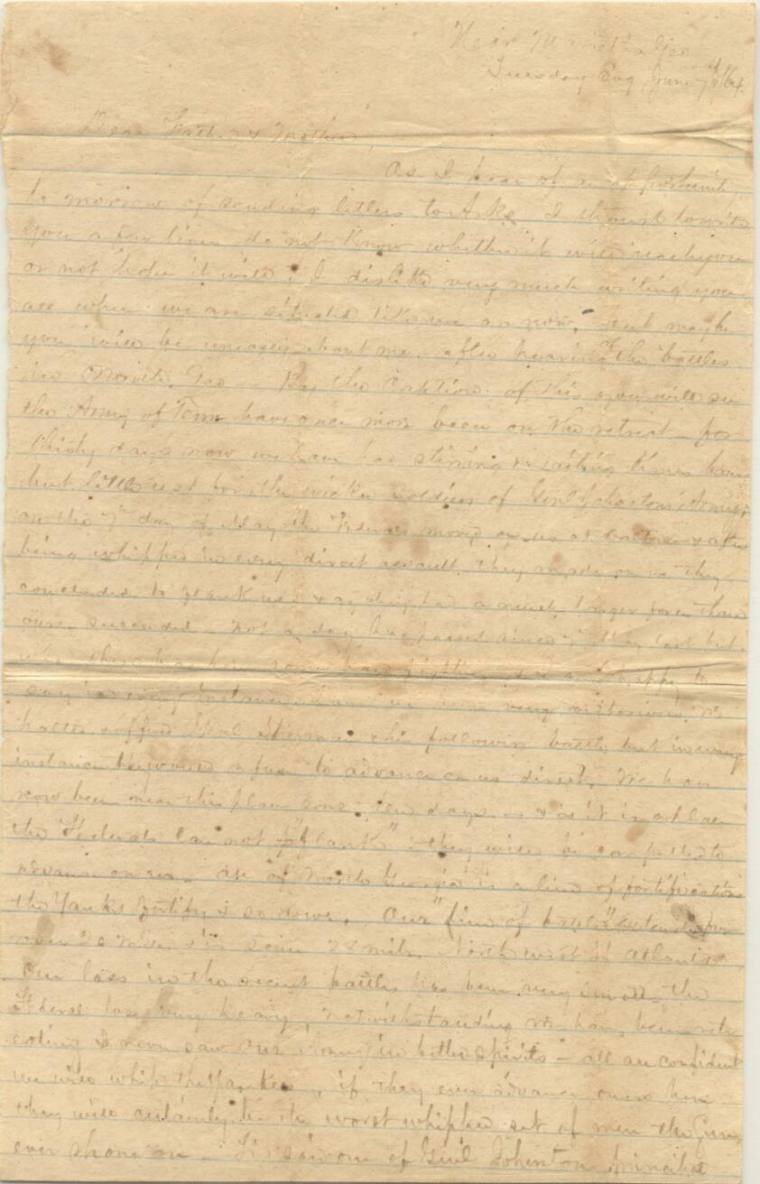 Near Marietta Geo
Tuesday Evg June 7th /64
Dear Father & Mother,
As I hear of an opportunity
to morrow of sending letters to Arks I thought to write
you a few lines do not know whether it will reach you
or not hope it will; I dislike very much writing you
all when we are situated like we are now, but maybe
you will be uneasy about me after hearing the battles
in North Geo — By the Caption of this you will see
the Army of Tenn have once more been on the retreat — for
thirty days now we have had stirring & exciting times have
but little rest for the soldiers of Genl Johnston's Army,
on the 7th day of May the moved on us at Dalton & after
being whipped in every direct assault they made on us they
concluded to flank us & as they had a much longer force than
ours, succeeded. Not a day has passed since
there has been some happy to
say in every instance have been very victorious. We
battle offered Genl Sherman the following battle but in every
instance he to advance on us direct. We have
now been near this place some few days as it is a place
the Federals can not "flank" they will be compelled to
advance on us. All of North Georgia is a line of fortifications
the Yanks fortify & so do we. Our "line of battle" extends
over 20 miles & is some 28 miles North west of Atlanta
Our loss in the recent battles has been very small the
Federal loss very heavy, notwithstanding we have been
I never saw our Army in better spirits — all are confident
we will whip the Yankees, if they ever advance on us here
they will certainly be the worst whipped set of men the Sun
ever shone on — of Genl Johnston